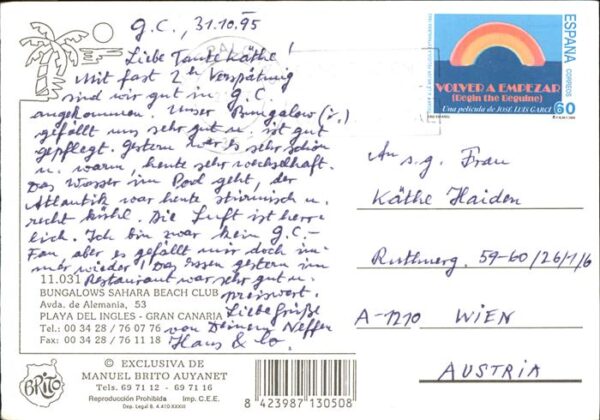 G.C., 31.10.95
Liebe Tante Käthe!
Mit fast 2h Verspätung
sind wir gut in G.C.
angekommen. Unser Bungalow
gefällt uns sehr gut u. ist gut
gepflegt. Gestern war es sehr schön
u. warm, heute sehr wechselhaft.
Das Wasser im Pool geht, der
Atlantik war heute stürmisch u.
recht kühl. Die Luft ist herr-
lich. Ich bin zwar kein G.C.-
Fan aber es gefällt mir doch im-
mer wieder! Das Essen gestern im
Restaurant war sehr gut u.
preiswert.
Liebe Grüße
von Deinem Neffen
Hans & Co.
11.031
BUNGALOWS SAHARA BEACH CLUB
Avda. de Alemania, 53
PLAYA DEL INGLES - GRAN CANARIA
Tel.: 00 34 28 / 76 07 76
Fax: 00 34 28 / 76 11 18
BRITO
© EXCLUSIVA DE
MANUEL BRITO AUYANET
Tels. 69 71 12 - 69 71 16
Reproducción Prohibida Imp. C.E.E.
Dep. Legal B. A 410 XXXIII
8 423987 130508
ESPAÑA
CORREOS
VOLVER A EMPEZAR
(Begin the Beguine)
60
Una película de JOSÉ LUIS GARCI
An s.g. Frau
Käthe Haiden
Ruthnerg. 59-60/26/1/6
A-1210 WIEN
AUSTRIA